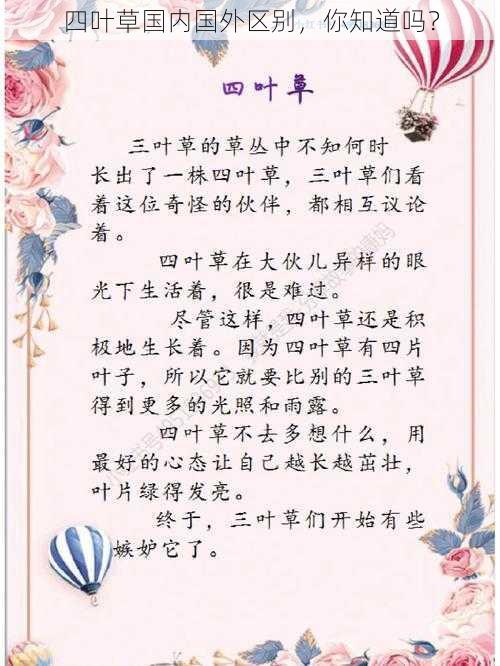 四叶草国内国外区别，你知道吗？
四叶草
三叶草的草丛中不知何时
长出了一株四叶草，三叶草们看
着这位奇怪的伙伴，都相互议论
着。
四叶草在大伙儿异样的眼
光下生活着，很是难过。
尽管这样，四叶草还是积
极地生长着。因为四叶草有四片
叶子，所以它就要比别的三叶草
得到更多的光照和雨露。
四叶草不去多想什么，用
最好的心态让自己越长越茁壮，
叶片绿得发亮。
终于，三叶草们开始有些
嫉妒它了。